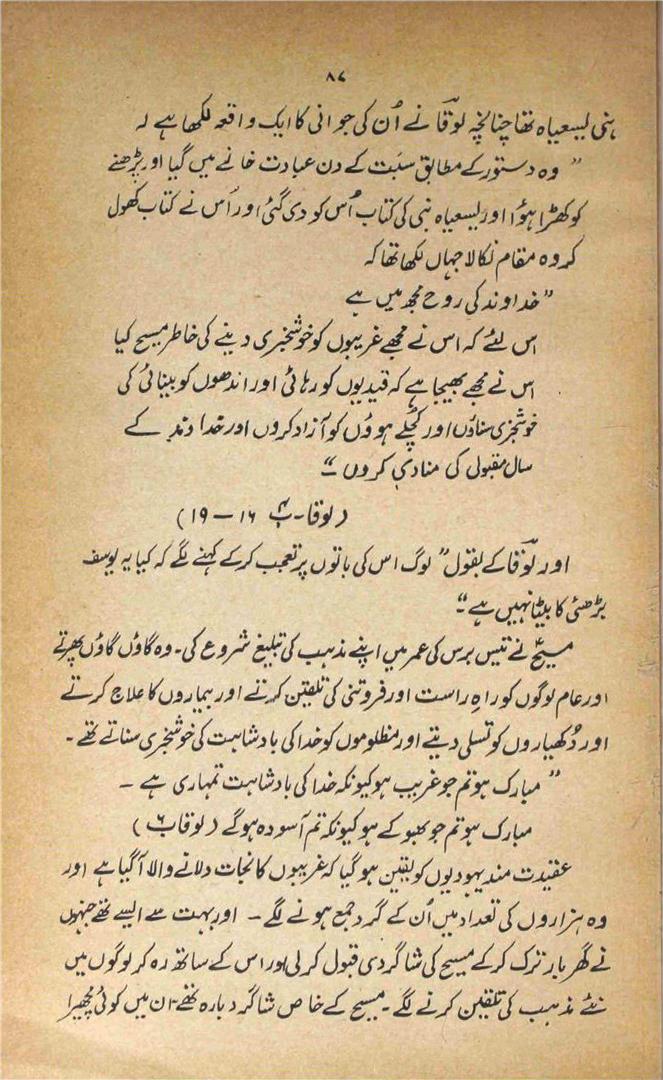 ۸۷
ہنی یسعیاہ تھا چنانچہ لوقا نے اُن کی جوانی کا ایک واقعہ لکھا ہے کہ
”وہ دستور کے مطابق سبت کے دن عبادت خانے میں گیا اور پڑھنے
کو کھڑا ہوُا اور یسعیاہ نبی کی کتاب اُس کو دی گئی اور اُس نے کتاب کھول
کر وہ مقام نکالا جہاں لکھا تھا کہ
”خداوند کی روح مجھ میں ہے
اس لئے کہ اس نے مجھے غریبوں کو خوشخبری دینے کی خاطر مسیح کیا
اس نے مجھے بھیجا ہے کہ قیدیوں کو رہائی اور اندھوں کو بینائی کی
خوشخبری سناؤں اور کچلے ہووُں کو آزاد کروں اور خداوند کے
سال مقبولی کی منادی کروں ۔“
(لوقا۔ ب۴ ۱۶ – ۱۹)
اور لوقا کے بقول ”لوگ اس کی باتوں پر تعجب کر کے کہنے لگے کہ کیا یہ یوسف
بڑھئی کا بیٹا نہیں ہے“۔
مسیحؑ نے تیس برس کی عمر میں اپنے مذہب کی تبلیغ شروع کی۔ وہ گاؤں گاؤں پھرتے
اور عام لوگوں کو راہِ راست اور فروتنی کی تلقین کرتے اور بیماروں کا علاج کرتے
اور دُکھیاروں کو تسلی دیتے اور مظلوموں کو خدا کی بادشاہت کی خوشخبری سناتے تھے۔
”مبارک ہو تم جو غریب ہو کیونکہ خدا کی بادشاہت تمہاری ہے ۔
مبارک ہو تم جو بھوکے ہو کیونکہ تم آسودہ ہوگے (لوقا ب۶)
عقیدت مند یہودیوں کو یقین ہو گیا کہ غریبوں کا نجات دلانے والا آ گیا ہے اور
وہ ہزاروں کی تعداد میں اُن کے گرد جمع ہونے لگے ۔ اور بہت سے ایسے تھے جنہوں
نے گھر بار ترک کر کے مسیح کی شاگردی قبول کر لی اور اس کے ساتھ رہ کر لوگوں میں
نئے مذہب کی تلقین کرنے لگے۔ مسیح کے خاص شاگرد بارہ تھے۔ ان میں کوئی مچھیرا